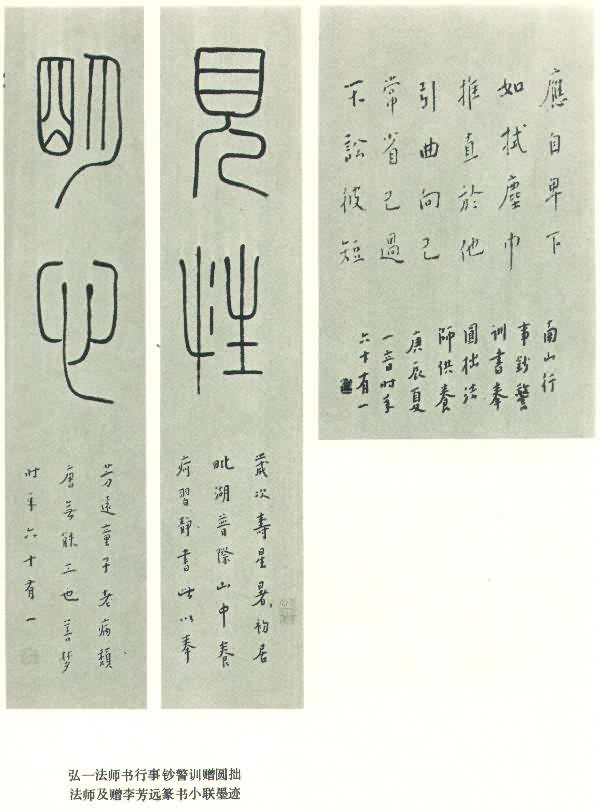 應自卑下
如拭塵巾
推直於他
引曲向己
常省己過
不訟彼短
南山行
事鈔警
訓書奉
圓拙法
師供養
庚辰夏
一音時年
六十有一
見性
歲次壽星暑初居
毗湖普際山中養
疴習靜書此以奉
明心
芳遠童子老病頹
唐無能也善夢
時年六十有一
弘一法师书行事钞警训赠圆拙
法师及赠李芳远篆书小联墨迹